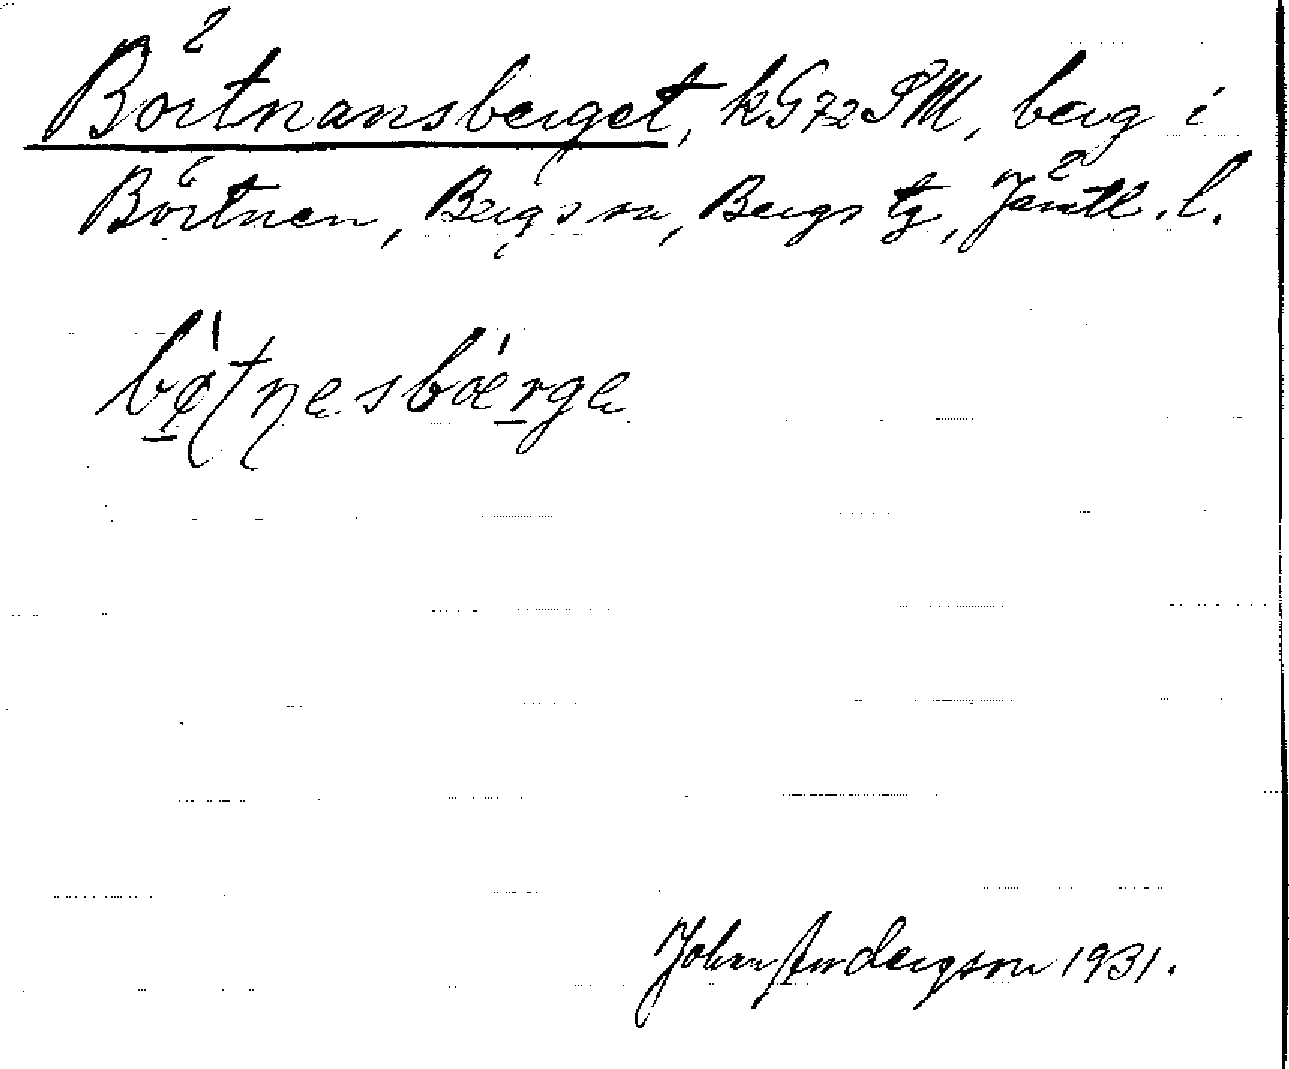 Börtnansberget, kG72SM, berg i
Börtnen, Bergs sn, Bergs tg, Jämtl. l.
bø̀tn̥esbæ̀rge
Johan Andersson 1931.